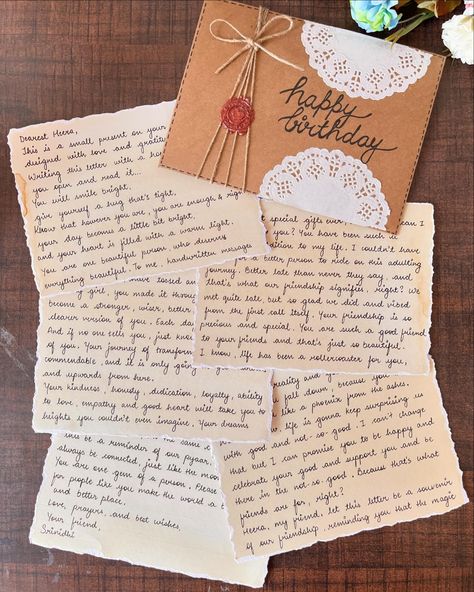 happy
birthday
Dearest Heera,
This is a small present on your
designed with love and gratit
Writing this letter with a hu
you open and read it...
You will smile bright,
give yourself a hug that's tight.
Know that however you are, you are enough & righ
your day become a little bit bright,
and your heart is filled with a warm light.
You are one beautiful person, who deserves
everything beautiful. To me, handwritten messages
special gifts ever,
can I
you? You have been such a
ition to my life. I couldn't have
for a better person to ride on this adulting
journey. Better late than never they say, and
that's what our friendship signifies, right? We
met quite late, but so glad we did and vibed
from the first call itself. Your friendship is so
precious and special. You are such a good friend
to your friends and that's just so beautiful.
I know, life has been a rollercoaster for you,
girl, you made it throu
become a stronger, wiser, bette
clearer version of you. Each da
And if no one tells you, just kno
of you. Your journey of transform
commendable, and it is only goin
and upwards from here.
Your kindness, honesty, dedication, loyalty, ability
to love, empathy and good heart will take you to
heights you couldn't even imagine. Your dreams
reality and
fall down, because you
like a phoenix from the ashes.
life is gonna keep surprising
with good and not-so-good. I can't change
that but I can promise you to be happy and
celebrate your good and support you and be
there in the not-so-good. Because that's what
friends are for, right?
Heera, my friend, let this letter be a souvenir
of our friendship, reminding you that the magic
be a reminder of our
always be connected, just like the moon
You are one gem of a person. Please
for people like you make the world a b
and better place.
Love, prayers, and best wishes,
Your friend,
Srinidhi